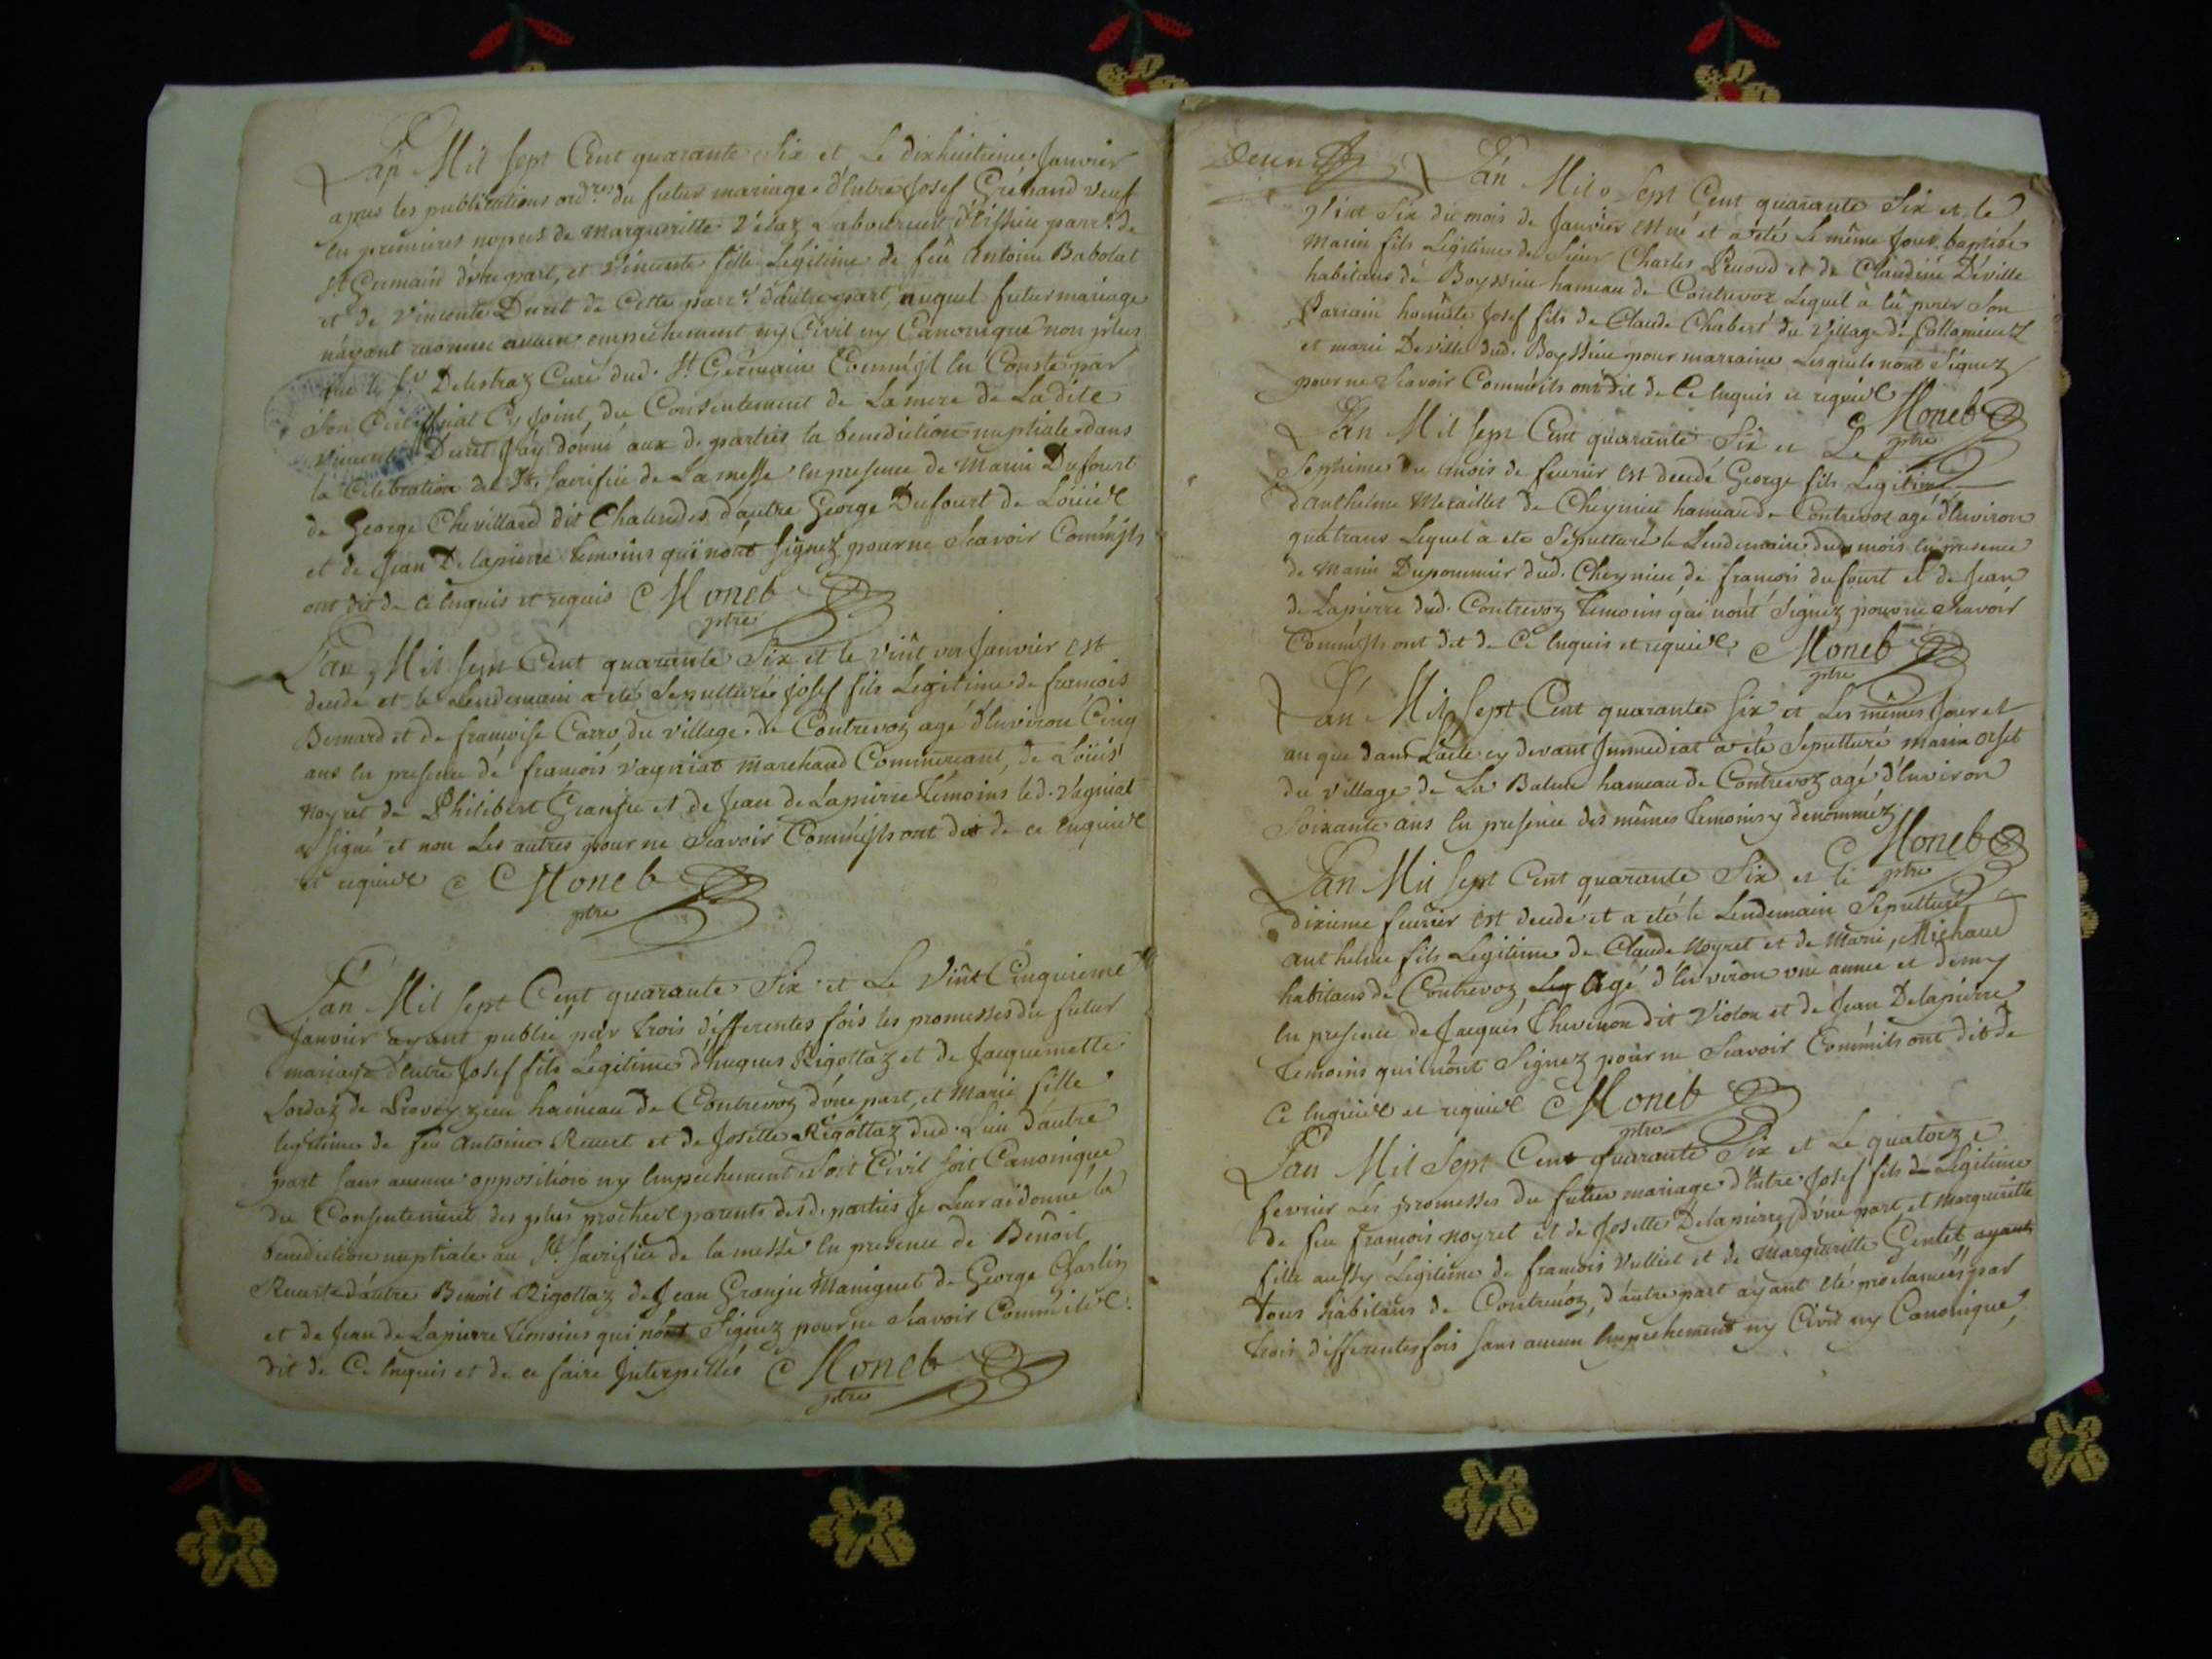 L'an Mil sept Cent quarante Six et Le dixhuitieme Janvier
apres les publications ord.res du futur mariage d'Entre Josef Grénand veuf
En premieres nopces de Margueritte Vélaz Laboureur parr.e de
St Germain d'vne part, et Vincente fille Legitime de feu Antoine Babolat
et de Vincente Duret de Cette parr.e d'autre part, auquel futur mariage
n'ayant reconnu aucun empechement ny Civil ny Canonique non plus
que le Sr Delestraz Curé dud. St Germain Comm'jl En Conste par
Son Certifficat Cy Joint, du Consentement de La mere de Ladite
Vincente Duret J'ay donné aux d. parties la benediction nuptiale dans
la Celebration du St. Sacrifice de La messe En presence de Marin Dufourt
de George Chevillard dit Chalendes d'autre George Dufourt de Loüise
et de Jean Delapierre temoins qui n'ont signez pour ne Scavoir Comm'jls
ont dit de Ce Enquis et requis Moneb
ptre
L'an Mil Sept Cent quarante Six et le vint vn Janvier est
decede et le Lendemain a eté Sepulturée josef fils Legitime de francois
Bernard et de francoise Carro, du village de Contrevoz agé d'Environ Cinq
ans En presence de francois vagniat marchand Commercant, de Loüis
Noyret de Philibert Granju et de Jean de Lapierre temoins led. vagniat
a signé et non Les autres pour ne Scavoir Comm'jls ont dit de ce Enquise
et requise Moneb
ptre
L'an Mil Sept Cent quarante Six et Le Vint Cinquieme
Janvier ayant publié par trois differentes fois les promesses du futur
mariage d'Entre Josef fils Legitime d'hugues Rigottaz et de Jacquemette
Lordaz de Proveyzeu hameau de Contrevoz d'vne part, et Marie fille
legitime de feu Antoine Revert et de Josette Rigottaz dud. Lieu d'autre
part sans aucune opposition ny Empechement Soit Civil soit Canonique
du Consentement des plus proches parents desd. parties Je Leur ai donné la
benediction nuptiale au St. Sacrifice de la messe En presence de Benoit
Revert d'autre Benoit Rigottaz de Jean Granju Maniguet de George Charlin
et de Jean de Lapierre temoins qui n'ont Signez pour ne Scavoir Comm'
dit de Ce Enquis et de ce faire Interpellés Moneb
ptre
Deux
L'an Mil Sept Cent quarante Six et le
Vint Six du mois de Janvier est né et a eté Le même Jour baptisé
Marin fils Legitime de Sieur Charles Penoud et de Claudine Déville
habitans de Boyssieu hameau de Contrevoz Lequel à Eû pour Son
Parrain honnete Josef fils de Claude Chabert du Village de Collomieux
et marie Deville dud. Boyssieu pour marraine Lesquels n'ont Signez
pour ne Scavoir Comm'ils ont dit de Ce Enquis et requise Moneb
ptre
L'an Mil Sept Cent quarante Six et Le
Septieme du mois de fevrier est decedé George fils Legitime
d'anthelme Meraillet de Cheynieu hameau de Contrevoz agé d'Environ
quatrans Lequel à ete Sepulturé le Lendemain dud. mois En presence
de Marin Duponmier dud. Cheynieu de francois dufourt et de Jean
de Lapierre dud. Contrevoz temoins qui n'ont Signez pour ne Scavoir
Comm'jls ont dit de Ce Enquis et requise Moneb
ptre
L'an Mil Sept Cent quarante Six et Les mêmes Jour et
an que dans L'acte cy devant Jmmediat a eté Sepulturé marin orset
du Village de La Balme hameau de Contrevoz agé d'Environ
Soixante ans En presence des mêmes temoins y denommez
Moneb
ptre
L'an Mil Sept Cent quarante Six et le
dixieme fevrier est decedé et a eté le Lendemain Sepulturé
anthelme fils Legitime de Claude Noyret et de Marie Michaud
habitans de Contrevoz agé d'Environ vne année et demy
En presence de Jacques Thevenon dit Violon et de Jean Delapierre
temoins qui n'ont Signez pour ne Scavoir Comm'ils ont dit de
Ce Enquise et requise Moneb
ptre
L'an Mil Sept Cent quarante Six et Le quatorze
fevrier Les promesses du futur mariage d'Entre Josef fils Legitime
de feu francois Noyret et de Josette Delapierre d'vne part, et Marguerite
fille aussy Legitime de francois Vulliet et de Marguerite Gentet ayant
tous habitans de Contrevoz, d'autre part ayant eté proclamées par
trois differentes fois sans aucun Empechement ny Civil ny Canonique,